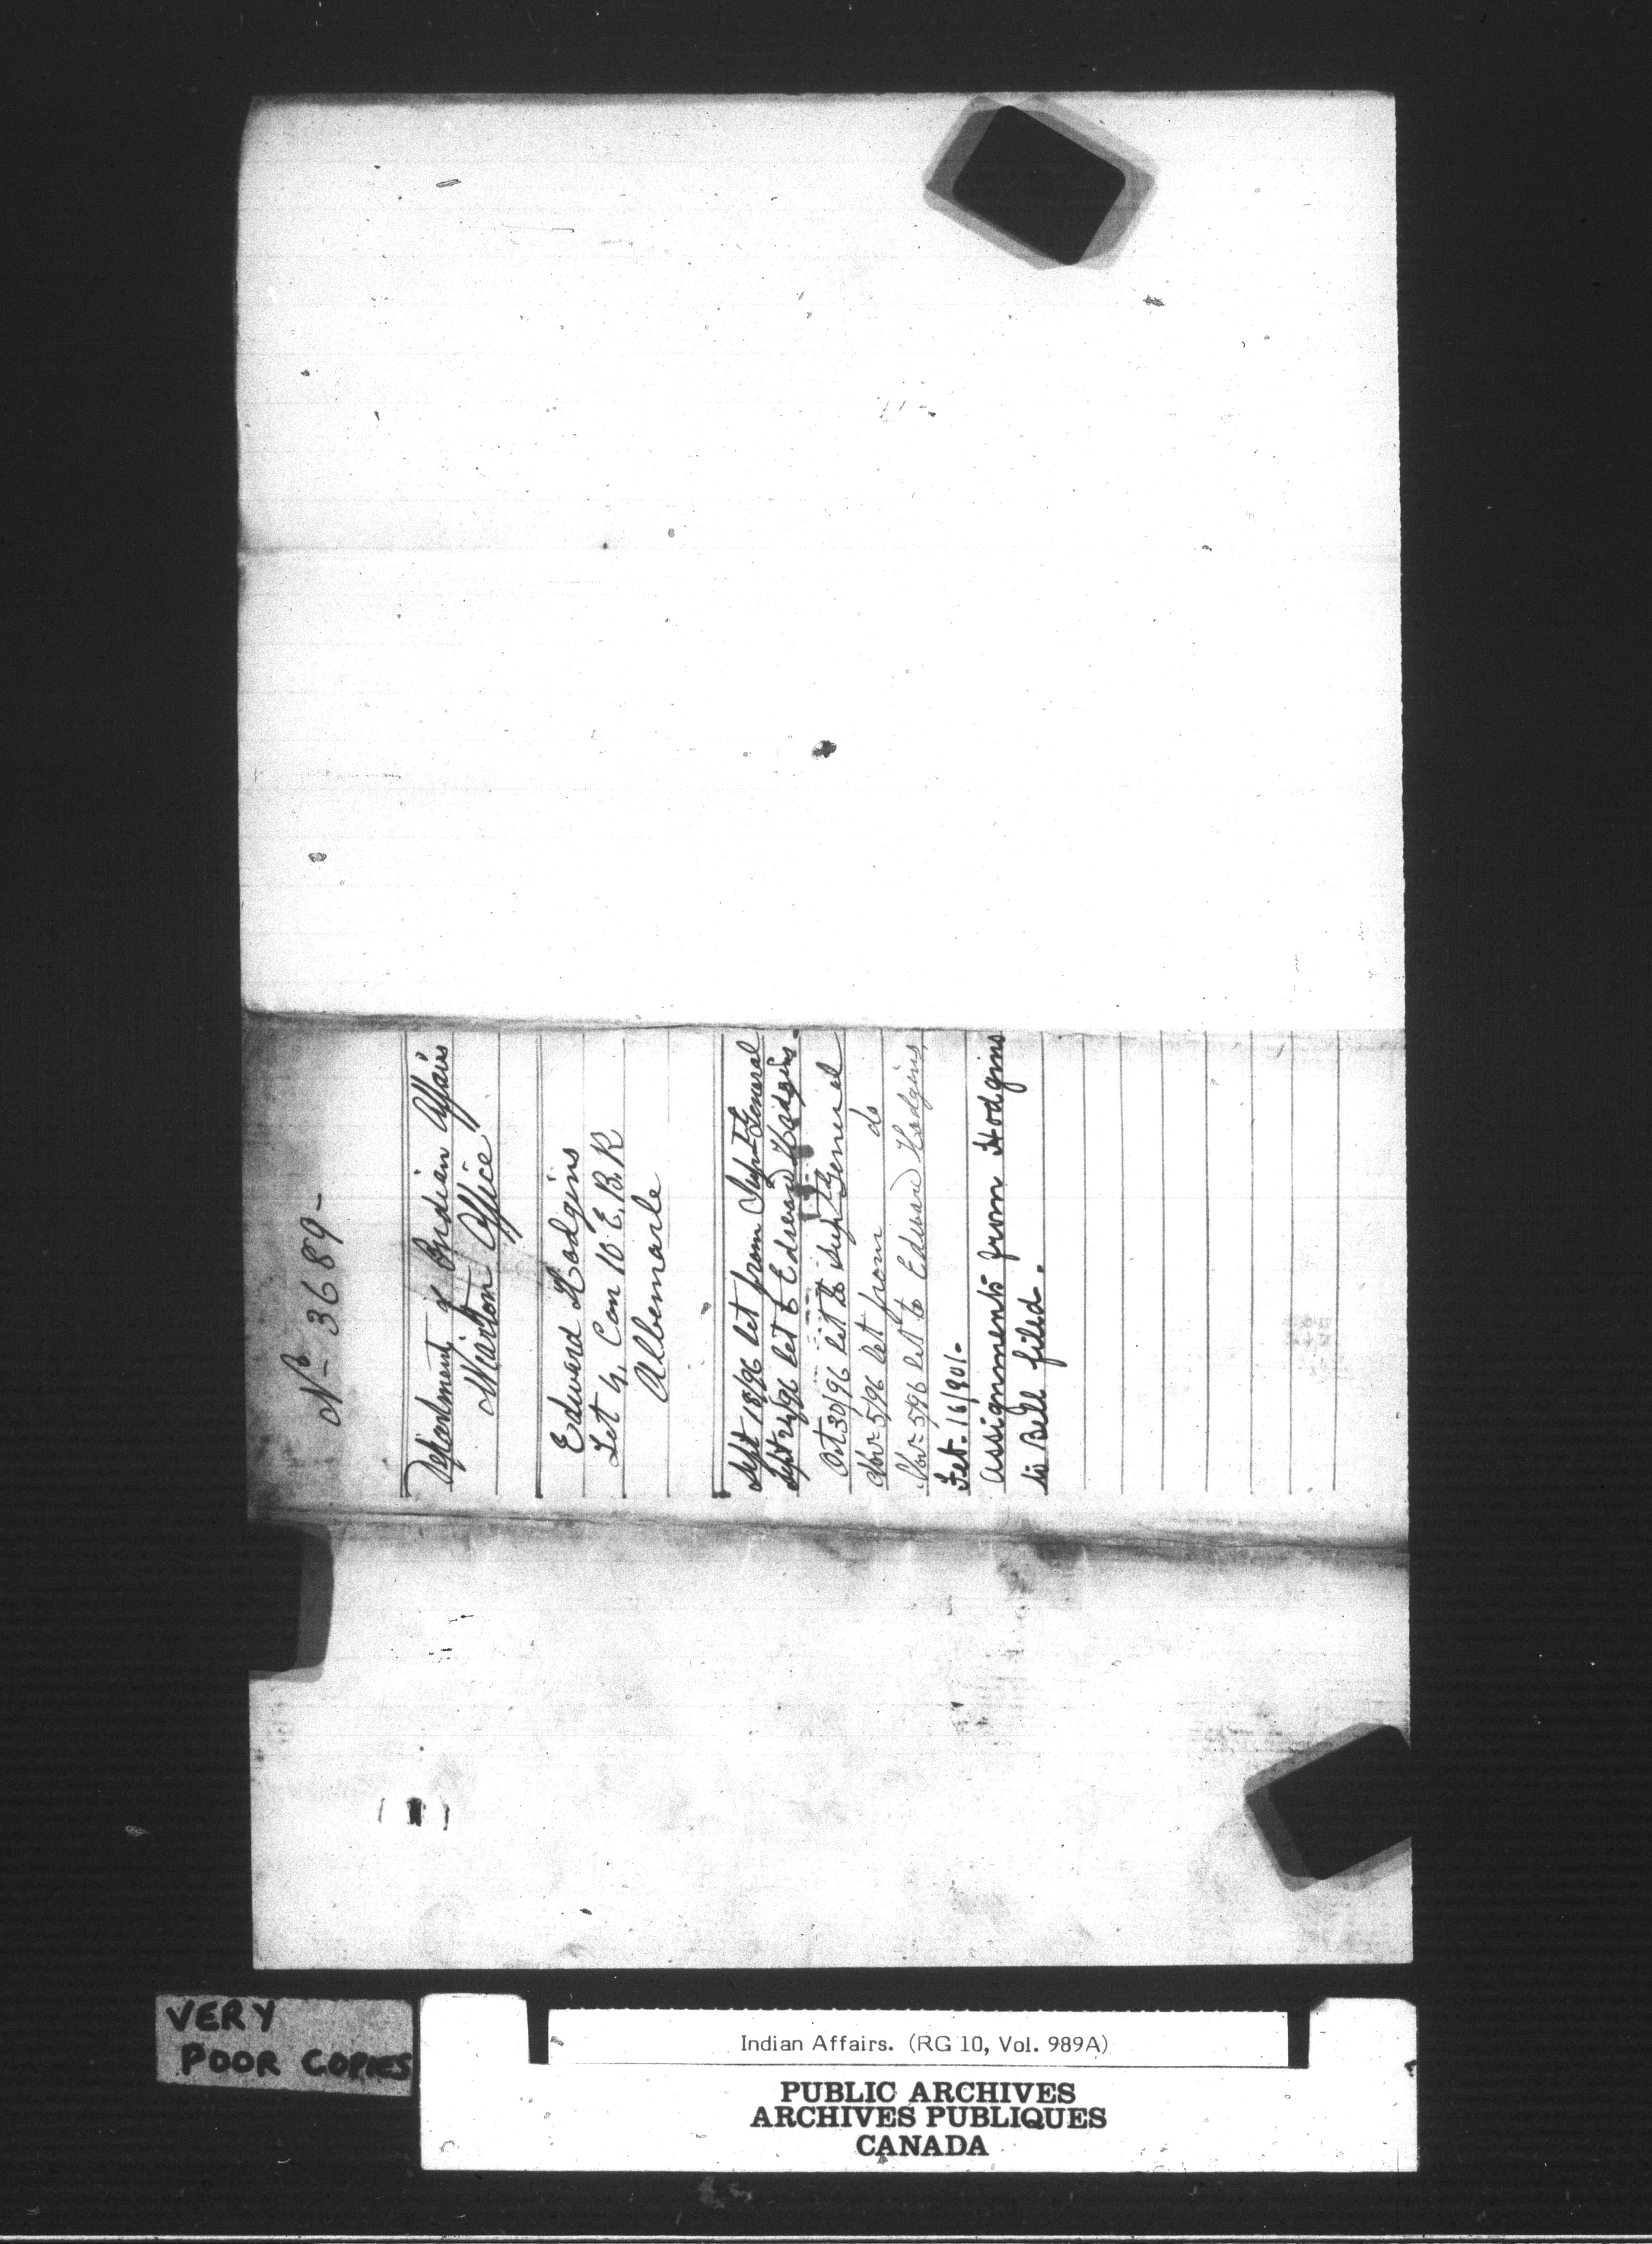 No 3689 -
Department of Indian Affairs
Wiarton Office
Edward Hodgins
Lot 4, Con 10 E.B.R
Albemarle
Sept 18/96 let from Supt General
Sept 24/96 let to Edward Hodgins.
Oct 30/96 let to Supt General
Nov 5/96 let from do
Nov 5/96 let to Edward Hodgins
Feb. 16/901-
Assignments from Hodgins
to Bell filed.
VERY
POOR COPIES
Indian Affairs. (RG 10, Vol. 989A)
PUBLIC ARCHIVES
ARCHIVES PUBLIQUES
CANADA